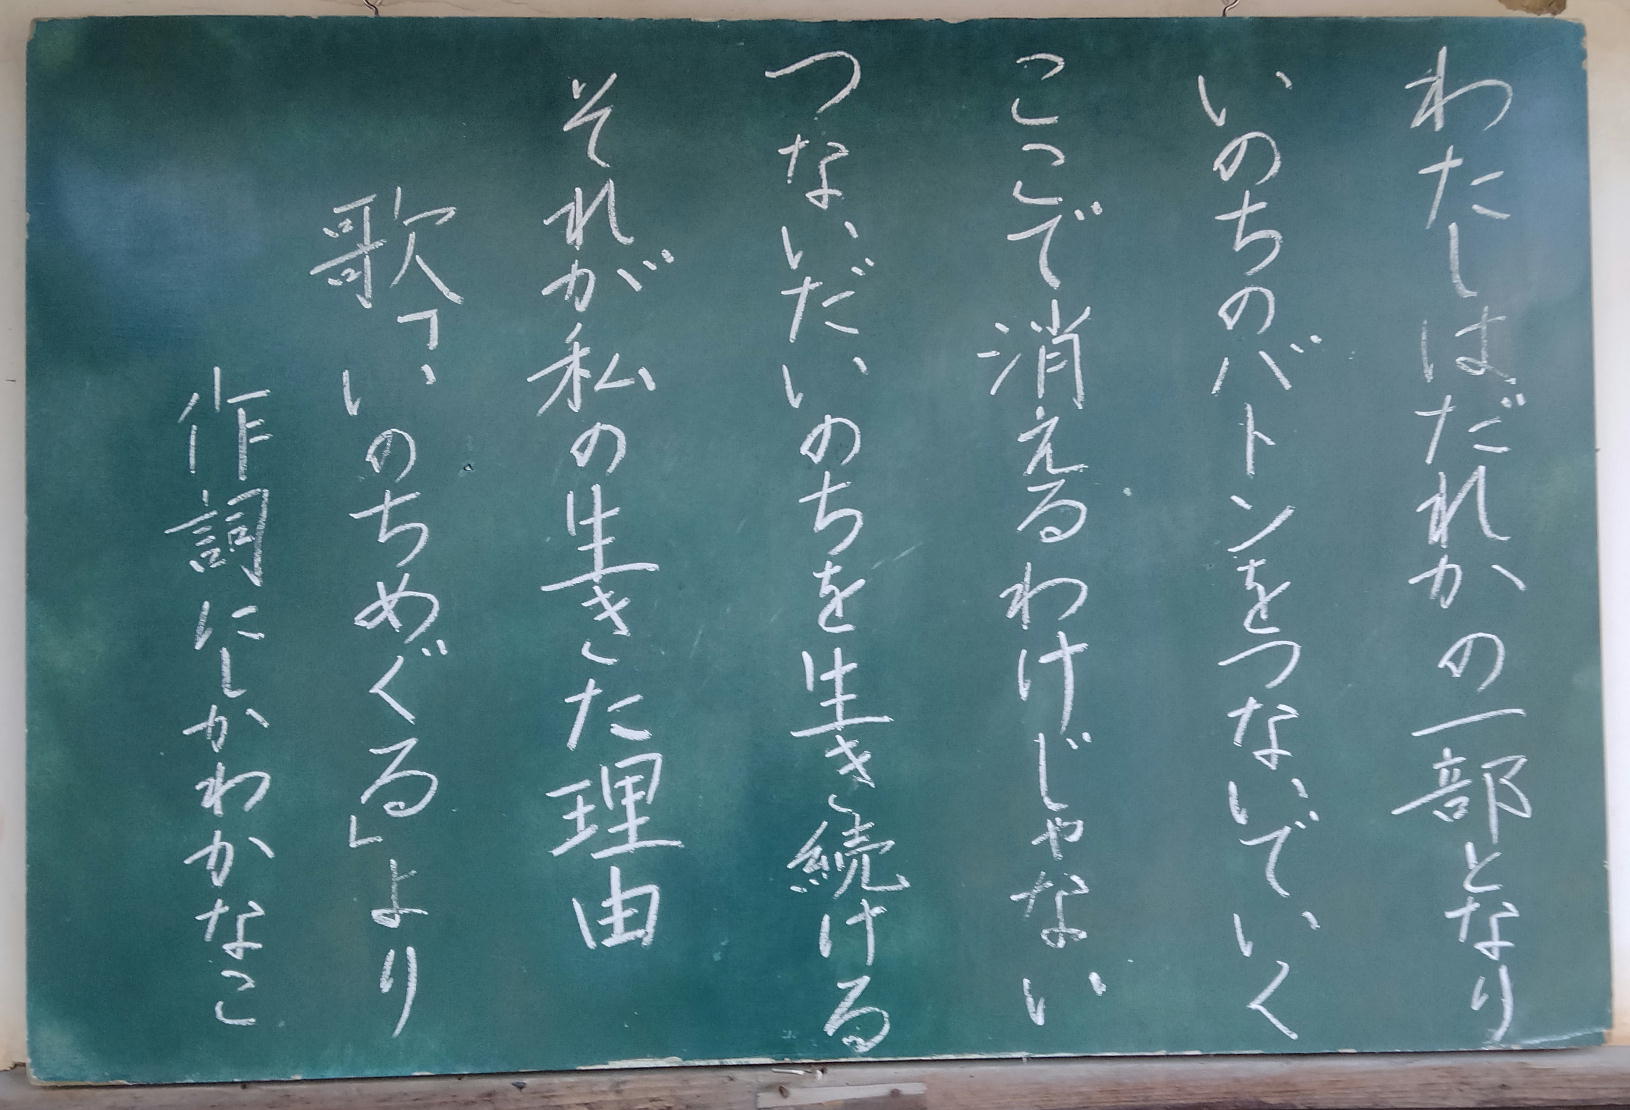 わたしはだれかの一部となり
いのちのバトンをつないでいく
ここで消えるわけじゃない
つないだいのちを生き続ける
それが私の生きた理由
歌「いのちめぐる」より
作詞にしかわかなこ